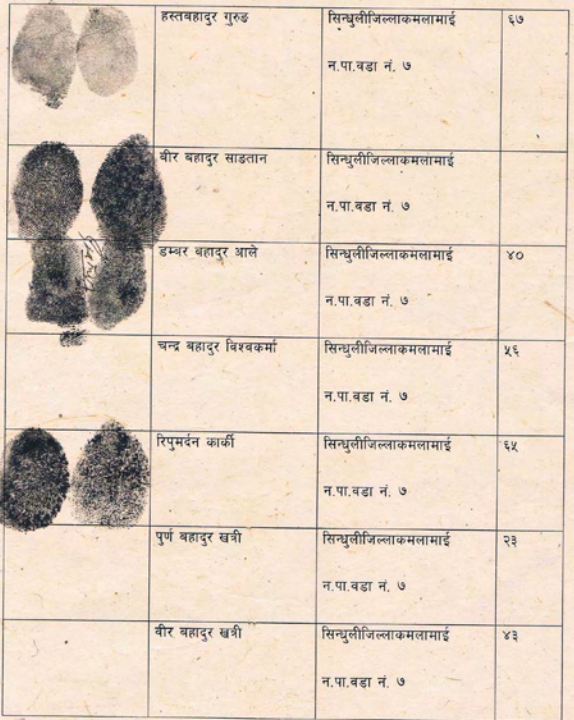 हस्तबहादुर गुरुङ सिन्धुलीजिल्लाकमलामाई ६७
न.पा.वडा नं. ७
वीर बहादुर साङतान सिन्धुलीजिल्लाकमलामाई
न.पा.वडा नं. ७
डम्बर बहादुर आले सिन्धुलीजिल्लाकमलामाई ४०
न.पा.वडा नं. ७
चन्द्र बहादुर विश्वकर्मा सिन्धुलीजिल्लाकमलामाई ५६
न.पा.वडा नं. ७
रिपुमर्दन कार्की सिन्धुलीजिल्लाकमलामाई ६५
न.पा.वडा नं. ७
पुर्ण बहादुर खत्री सिन्धुलीजिल्लाकमलामाई २३
न.पा.वडा नं. ७
वीर बहादुर खत्री सिन्धुलीजिल्लाकमलामाई ४३
न.पा.वडा नं. ७